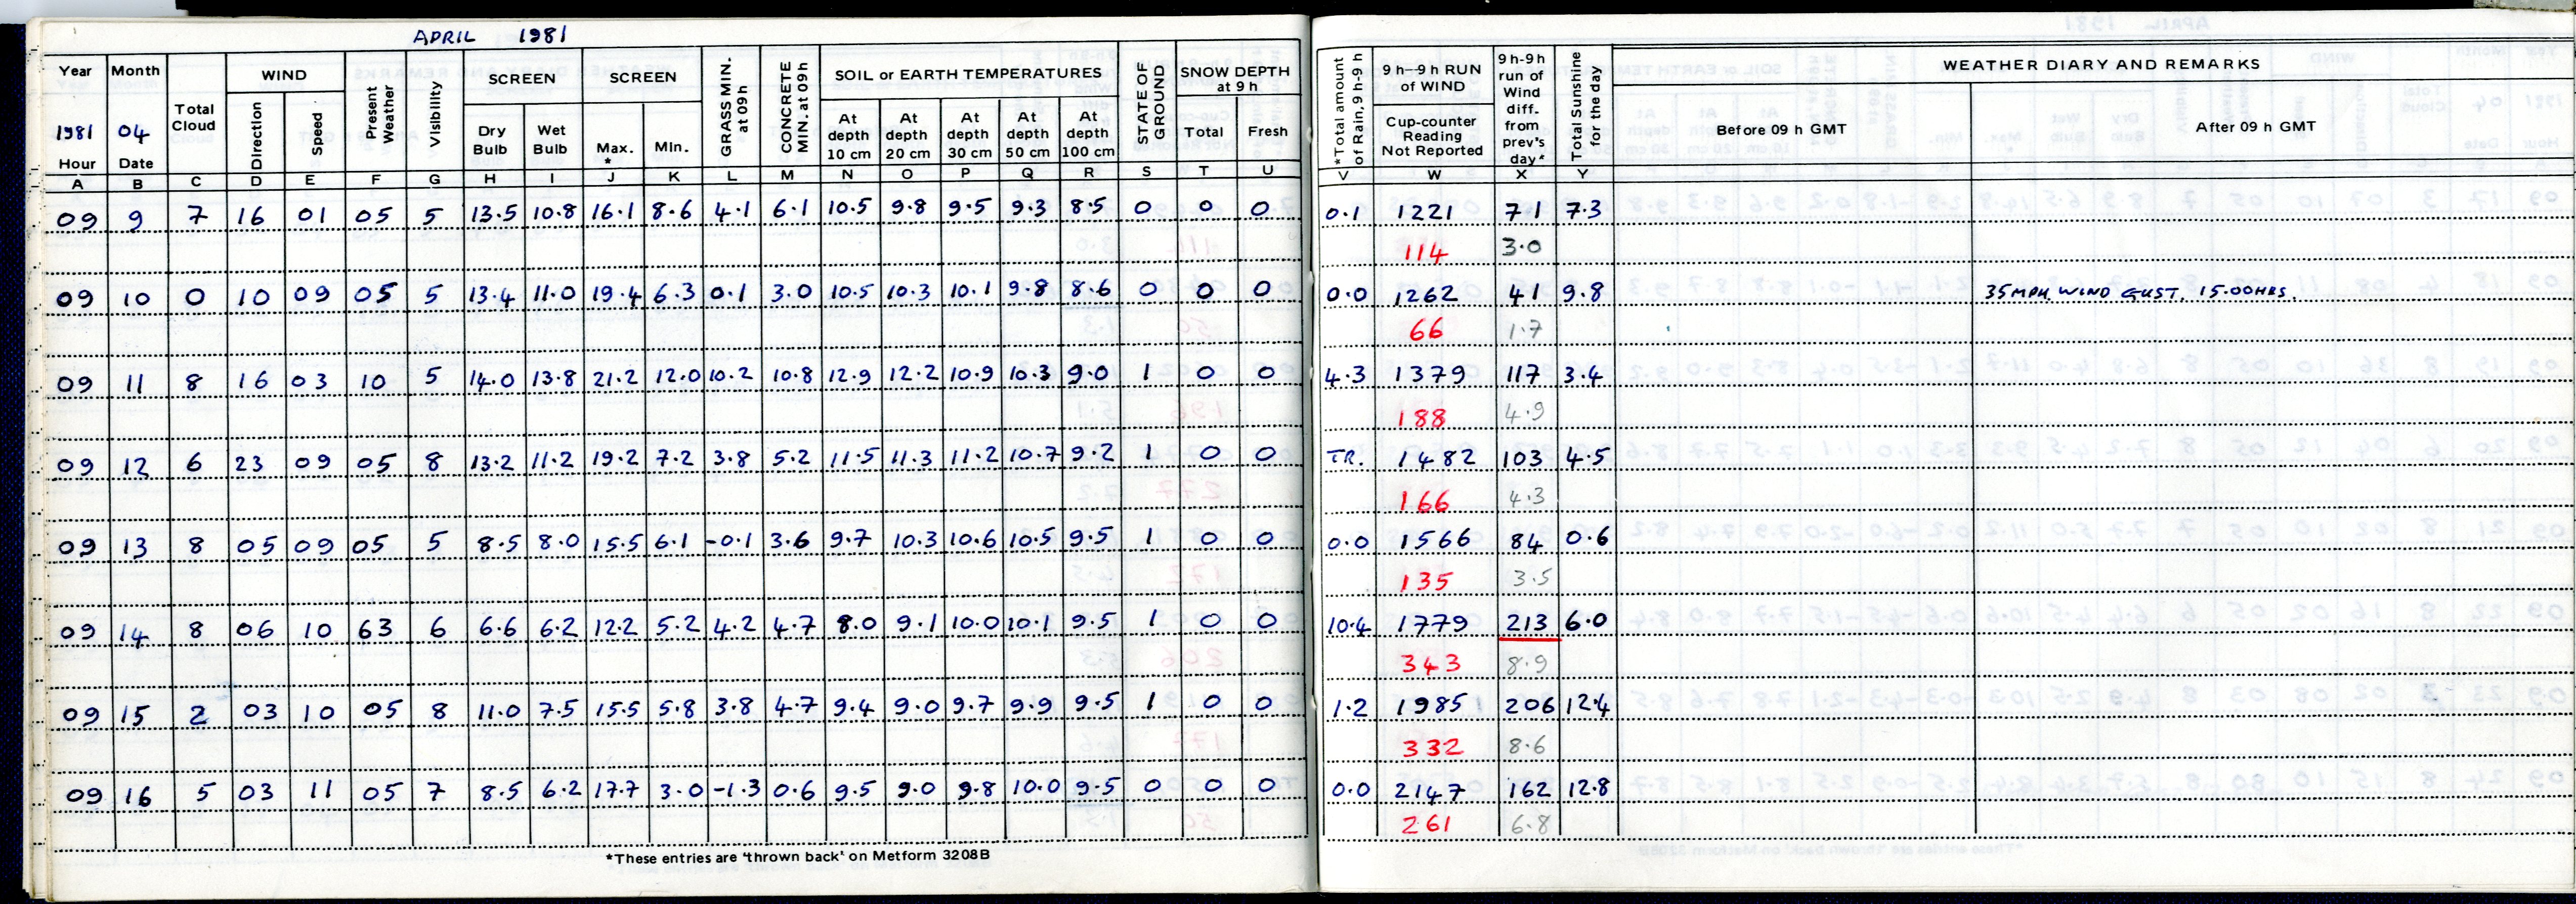 APRIL 1981
Year Month Total Cloud WIND Present Weather Visibility SCREEN SCREEN GRASS MIN. at 09h CONCRETE MIN. at 09h SOIL or EARTH TEMPERATURES STATE OF GROUND SNOW DEPTH at 9 h *Total amount of Rain, 9 h-9 h 9 h--9 h RUN of WIND 9 h-9h run of Wind diff. from prev's day* Total Sunshine for the day WEATHER DIARY AND REMARKS
1981 04 Direction Speed Dry Bulb Wet Bulb Max. * Min. At depth 10 cm At depth 20 cm At depth 30 cm At depth 50 cm At depth 100 cm Total Fresh Cup-counter Reading Not Reported Before 09 h GMT After 09 h GMT
Hour Date
A B C D E F G H I J K L M N O P Q R S T U V W X Y
09 9 7 16 01 05 5 13.5 10.8 16.1 8.6 4.1 6.1 10.5 9.8 9.5 9.3 8.5 0 0 0 0.1 1221 71 7.3
114 3.0
09 10 0 10 09 05 5 13.4 11.0 19.4 6.3 0.1 3.0 10.5 10.3 10.1 9.8 8.6 0 0 0 0.0 1262 41 9.8 35 MPH. WIND GUST, 15.00 HRS.
66 1.7
09 11 8 16 03 10 5 14.0 13.8 21.2 12.0 10.2 10.8 12.9 12.2 10.9 10.3 9.0 1 0 0 4.3 1379 117 3.4
188 4.9
09 12 6 23 09 05 8 13.2 11.2 19.2 7.2 3.8 5.2 11.5 11.3 11.2 10.7 9.2 1 0 0 TR. 1482 103 4.5
166 4.3
09 13 8 05 09 05 5 8.5 8.0 15.5 6.1 -0.1 3.6 9.7 10.3 10.6 10.5 9.5 1 0 0 0.0 1566 84 0.6
135 3.5
09 14 8 06 10 63 6 6.6 6.2 12.2 5.2 4.2 4.7 8.0 9.1 10.0 10.1 9.5 1 0 0 10.4 1779 213 6.0
343 8.9
09 15 2 03 10 05 8 11.0 7.5 15.5 5.8 3.8 4.7 9.4 9.0 9.7 9.9 9.5 1 0 0 1.2 1985 206 12.4
332 8.6
09 16 5 03 11 05 7 8.5 6.2 17.7 3.0 -1.3 0.6 9.5 9.0 9.8 10.0 9.5 0 0 0 0.0 2147 162 12.8
261 6.8
*These entries are 'thrown back' on Metform 3208B